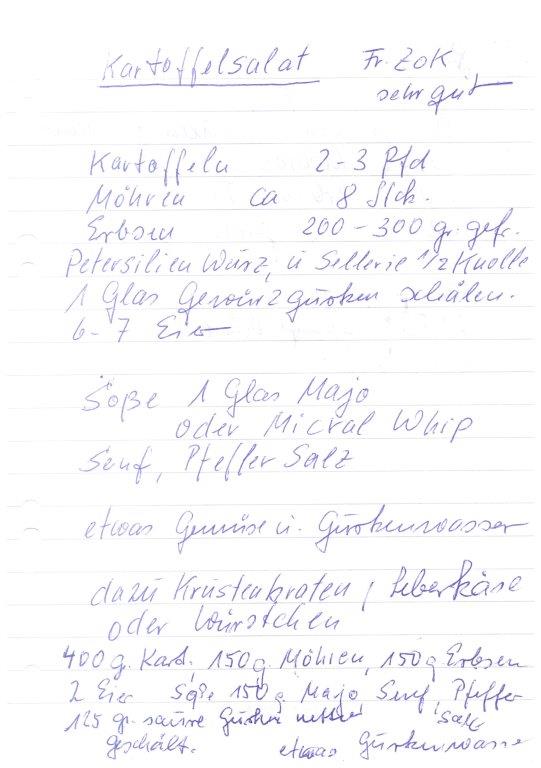 Kartoffelsalat Fr. Zok
sehr gut
Kartoffeln 2-3 Pfd
Möhren ca 8 Stck.
Erbsen 200-300 gr. gefr.
Petersilien Wurz, u Sellerie 1/2 Knolle
1 Glas Gewürzgurken schälen.
6-7 Eier
Soße 1 Glas Majo
oder Micral Whip
Senf, Pfeffer Salz
etwas Gemüse u. Gurkenwasser
dazu Krustenbraten, Leberkäse
oder Würstchen
400 g. Kart, 150 g. Möhren, 150 g Erbsen
2 Eier Soße 150 g Majo Senf, Pfeffer
125 gr. saure Gurken Salz
geschält. etwas Gurkenwasser